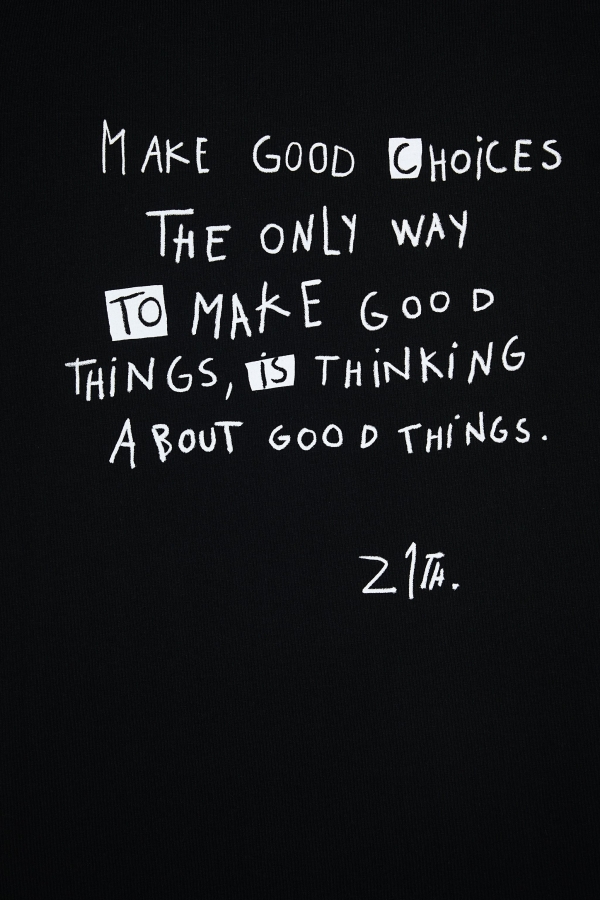 MAKE GOOD CHOiCES
THE ONLY WAY
TO MAKE GOOD
THiNGS, iS THiNKiNG
ABOUT GOOD THiNGS.
21TH.